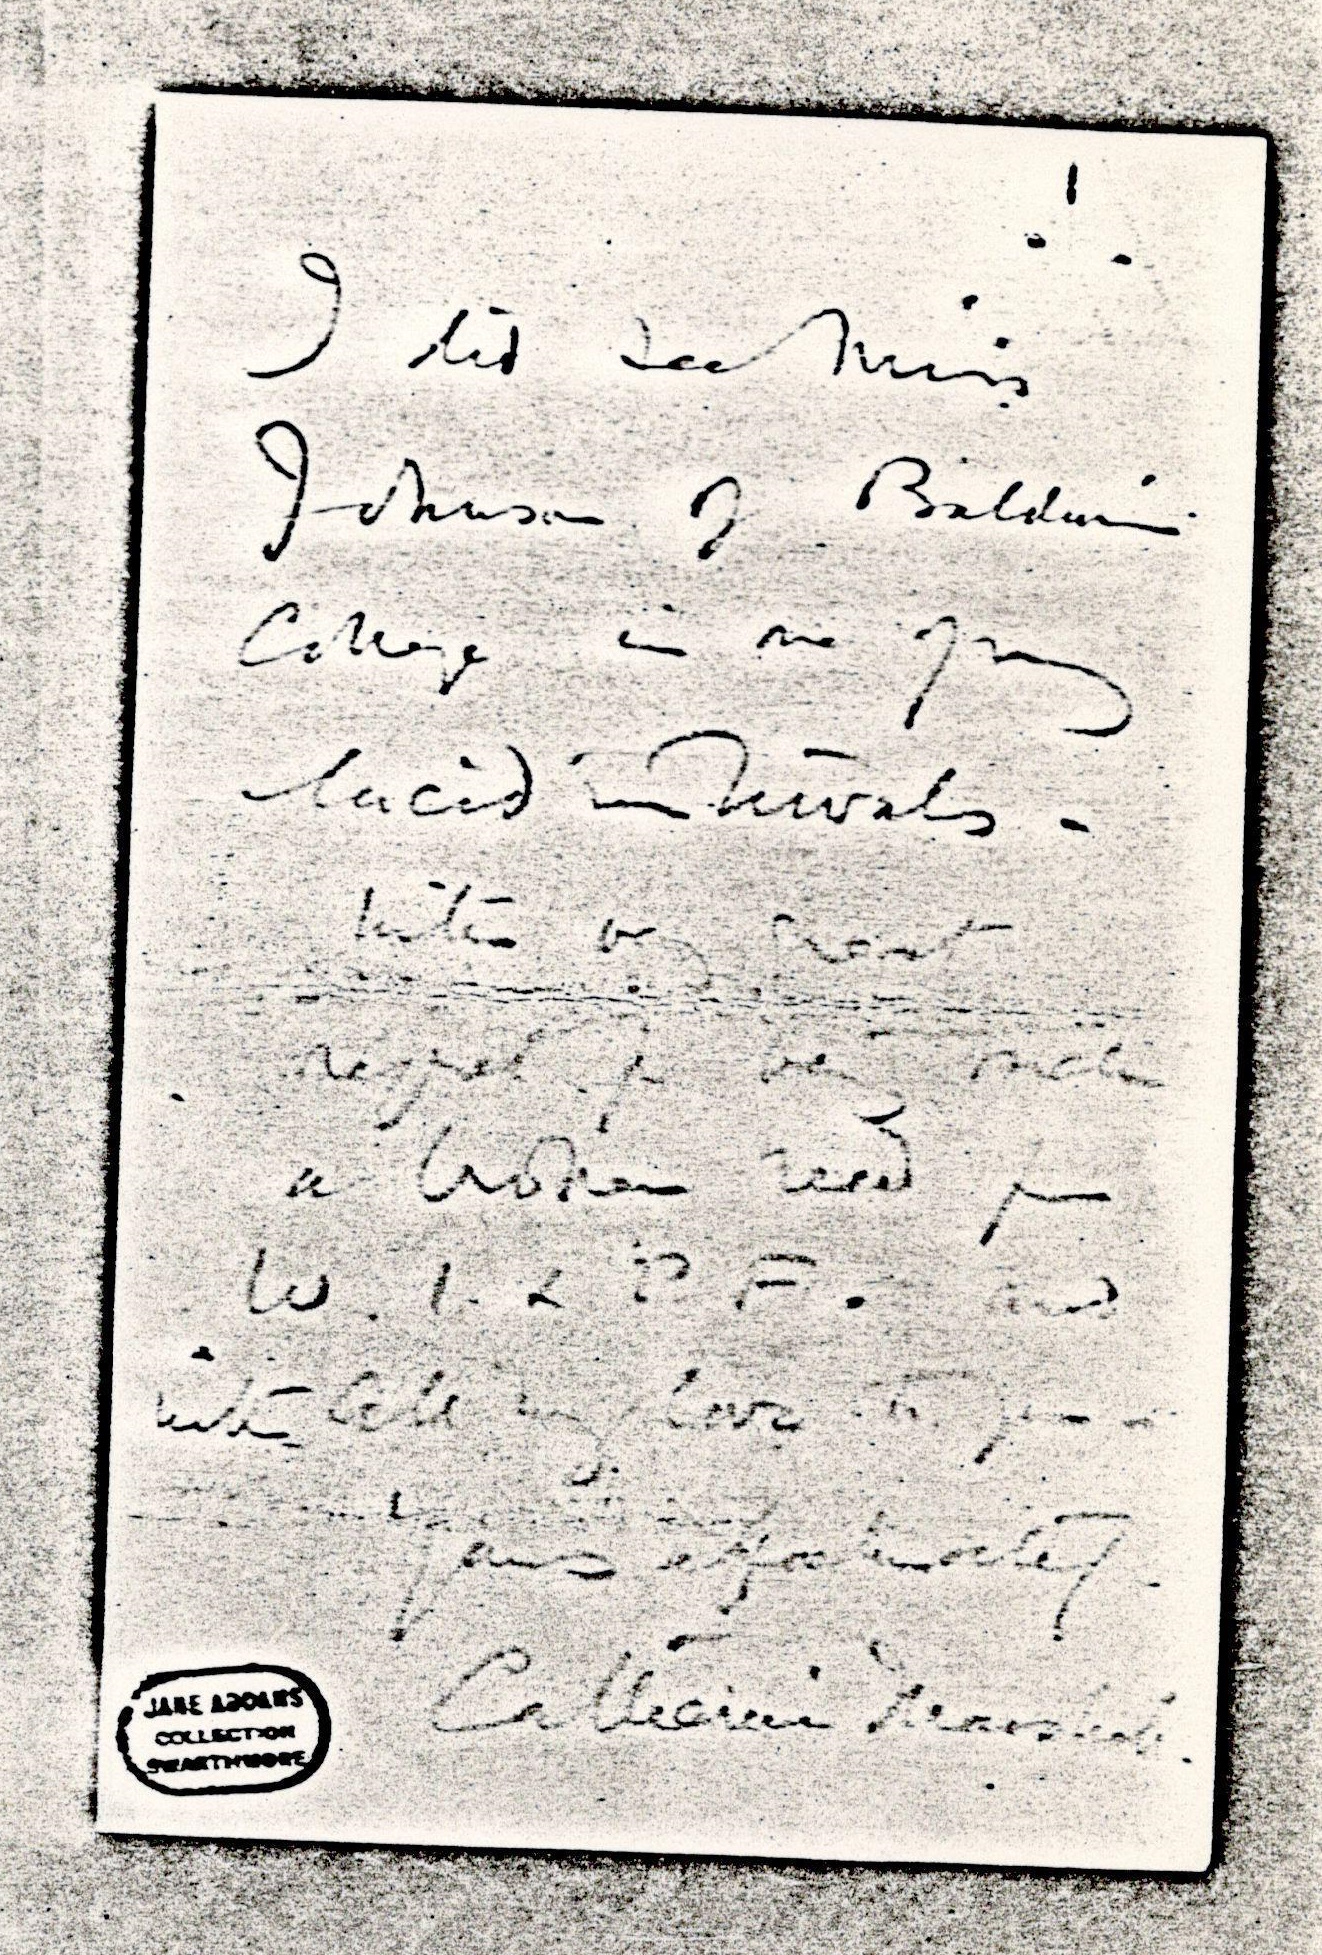 I did see Miss
Johnson of Baldwin
College in one of my
lucid intervals.
With very great
regret for being such
a broken reed for
W. I. L P F. and
with all my love to you -
Yours affectionately.
Catherine Marshall.
JANE ADDAMS
COLLECTION
SWARTHMORE